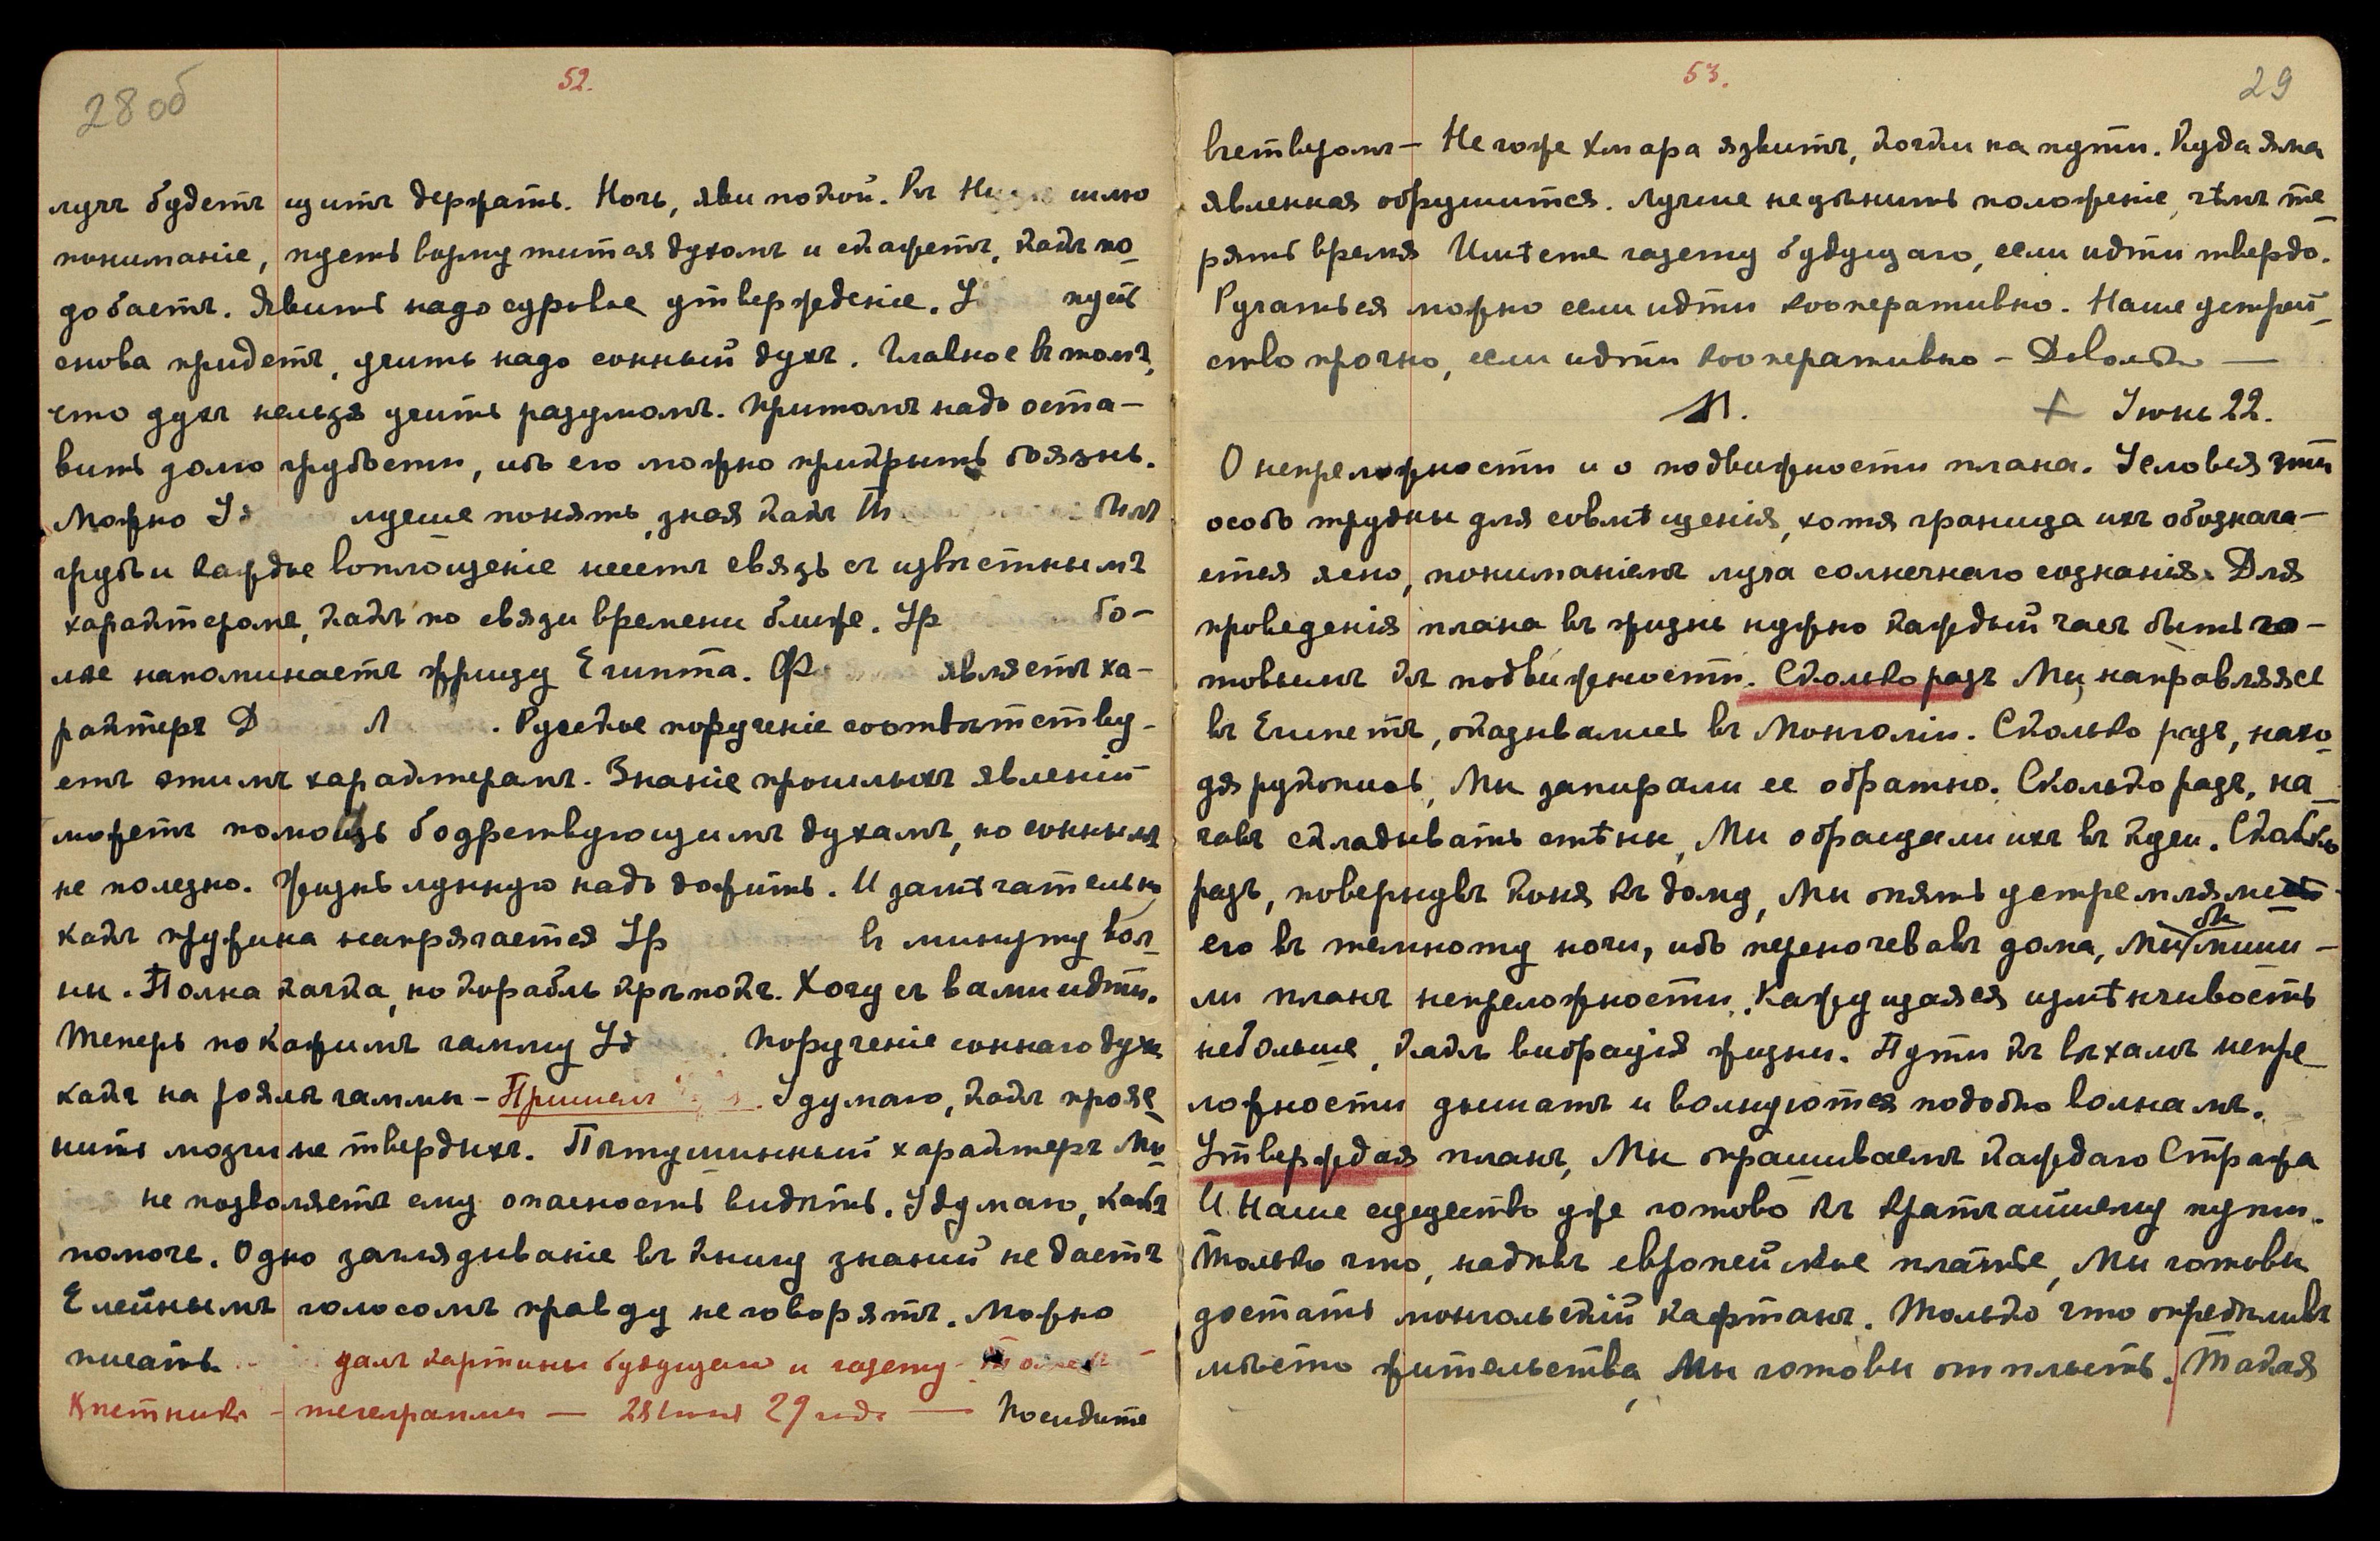 28 об
52.
лучъ будетъ щитъ держать. Ночь, яви покой. Къ шлю
пониманіе, пусть возму щитая духомъ и скажетъ, какъ по-
добаетъ. Явить надо суровое утвержденіе. У пусть
снова придетъ, учить надо сонный духъ. Главное въ томъ,
что духъ нельзя учить разумомъ. Притомъ надо оста-
вить долю грубости, ибо его можно прикрыть боязнь.
Можно Уд лучше понять, зная какъ былъ
грубъ и каждое воплощеніе несетъ связь съ извѣстнымъ
характеромъ, какъ по связи времени ближе. Ур бо-
лѣе напоминаетъ жрицу Египта. Ф являетъ ха-
рактеръ Д Л . Русское порученіе соотвѣтству-
етъ этимъ характерамъ. Знаніе прошлыхъ явленій
можетъ помощь бодрствующимъ духамъ, но соннымъ
не полезно. Жизнь лунную надо дожить. И замѣчательно
какъ пружина напрягается Ур въ минуту вол-
ны. Полна качка, но корабль крѣпокъ. Хочу съ вами идти.
Теперь покажимъ гамму Уд . Порученіе соннаго духа
какъ на рояль гаммы – Пришелъ . Удумаю, какъ прояс-
нить мозги не твердыхъ. Пѣтушинный характеръ Мо-
не позволяетъ ему опасность видѣть. Удумаю, какъ
помочь. Одно заглядываніе въ книгу знаній не даетъ
Елейнымъ голосомъ правду не говорятъ. Можно
писать. далъ картины будущаго и газету –
– телеграммы — 28 29 года — Посидите
53.
29
вчетверомъ – Не гоже хмара язвитъ, когда на пути. Куда яма
явленная обрушится. Лучше не дѣнить положеніе, чѣмъ те-
рять время Имѣете газету будущаго, если идти твердо.
Ручаться можно если идти кооперативно. Наше устрой-
ство прочно, если идти кооперативно – Довольно —
М. + Іюнь 22.
О непреложности и о подвижности плана. Условія эти
особо трудны для совмѣщенія, хотя граница ихъ обознача-
ется ясно, пониманіемъ луча солнечнаго сознанія. Для
проведенія плана въ жизнь нужно каждый часъ быть го-
товымъ къ подвижности. Сколько разъ Мы, направляясь
въ Египетъ, оказывались въ Монголіи. Сколько разъ, нахо-
дя рукопись, Мы запирали ее обратно. Сколько разъ, на-
чавъ складывать стѣны, Мы обращали ихъ въ кучи. Сколько
разъ, повернувъ коня къ дому, Мы опять устремляли
его въ темноту ночи, ибо переночевавъ дома, Мы бы лиши-
ли планъ непреложности. Кажущаяся измѣнчивость
не больше, какъ вибрація жизни. Пути къ вѣхамъ непре-
ложности дышатъ и волнуются подобно волнамъ.
Утверждая планъ, Мы опрашиваемъ каждаго Стража
И Наше существо уже готово къ кратчайшему пути.
Только что, надѣвъ европейское платье, Мы готовы
достать монгольскій кафтанъ. Только что опредѣливъ
мѣсто жительства, Мы готовы отплыть. Такая